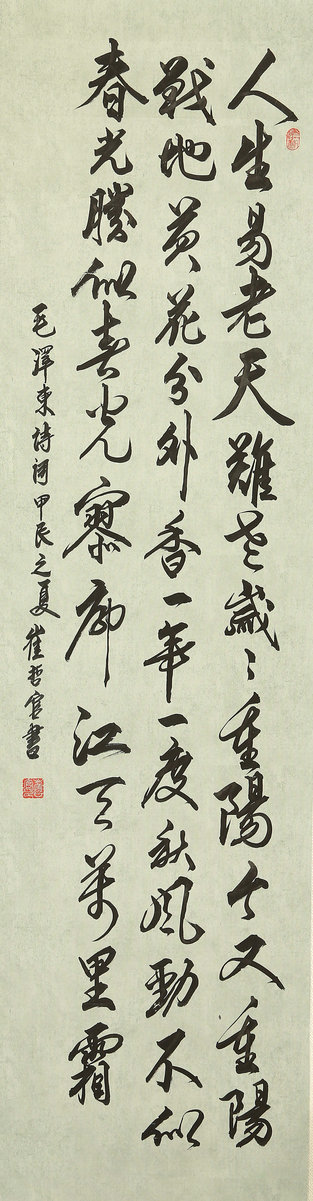 人生易老天難老歲々重陽今又重陽
戰地黃花分外香一年一度秋風勁不似
春光勝似春光寥廓江天萬里霜
毛澤東詩詞甲辰之夏崔哲官書